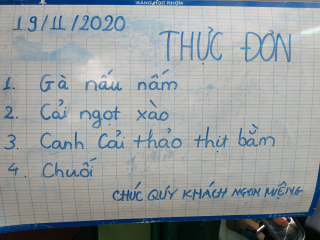 BẢNG TỪ HỌC NHÓM
19/11/2020
THỰC ĐƠN
1. Gà nấu nấm
2. Cải ngọt xào
3. Canh Cải thảo thịt bằm
4. Chuối
CHÚC QUÝ KHÁCH NGON MIỆNG